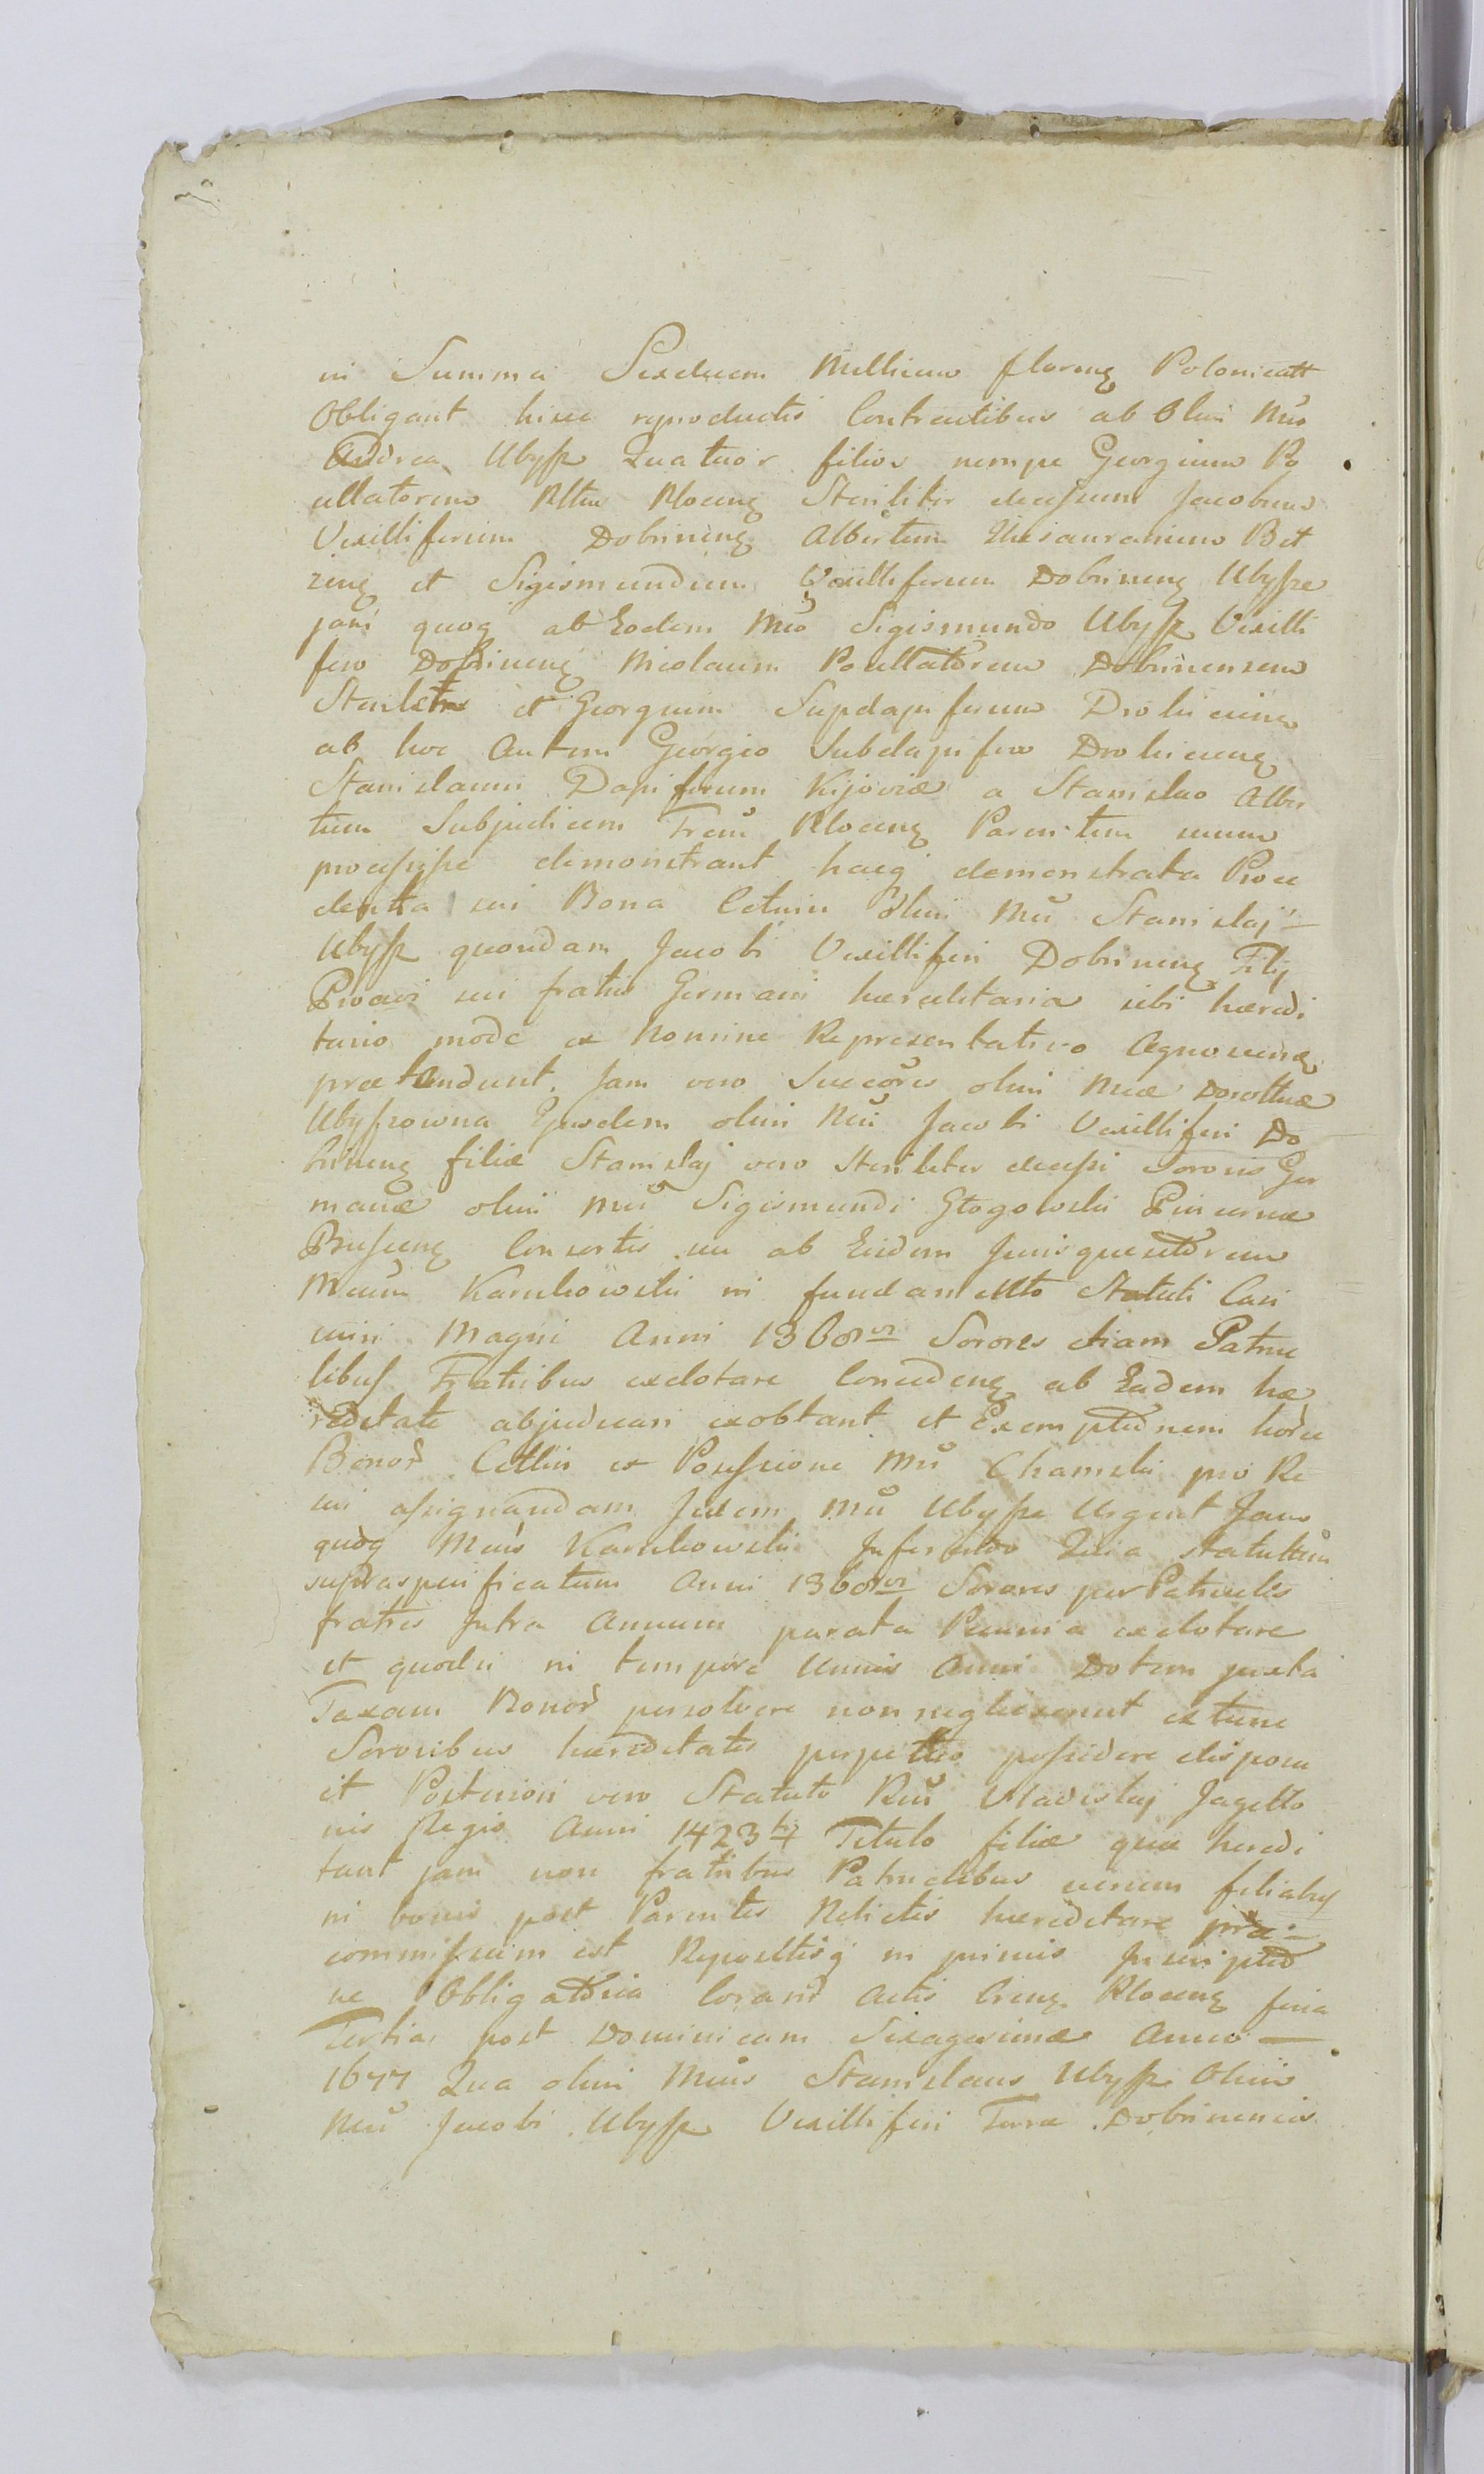 in Summa Sexdecem Millium floreng Polonicatt
Obligant hisce reproductis Contrentibus ab Olim Mco
Andrea Ubysz Quatuor filios nempe Georgium Po
cillatorem Ploceng Steriliter decessum Jacobum
Vexilliferum Dobrineng Albertum Thesaurarium
et Sigismundum Vexilliferum Dobrineng Ubysze
jam quoq ab Eodem Mco Sigismundo Ubysz Vexilli
fero Dobrineng Nicolaum Pocillatorem Dobrinensem
et Georgium Supdapiferum Drohicien
ab hoc Autem Georgio Subdapifero Drohiceng
Stanislaum Dapiferum Kijoviæ a Stanislao Alber
tum Subjudicem Ploceng Parentem suum
processisse demonstrant hacq demonstrata Proce
dentia sui Bona Cetlin Olim Mci Stanislaj —
Ubysz quondam Jacobi Vexilliferi Dobrineng Filij
Proavi sui fratris Germani hæreditaria sibi hæredi
tario modo ex Nomine Representativo
prætendunt. Jam vero Succores olim Mcæ Dorotheæ
Ubyszowna Ejusdem olim Mci Jacobi Vexilliferi Do
brineng filiæ Stanislaj vero steriliter decessi Sororis Ger
manæ olim Mci Sigismundi Głogowski Pincernæ
Consortis seu ab Eisdem Jurisquesitorem
Mcum Karnkowski in fundamento Statuti Casi
miri Magni Anni 1368vi Sorores etiam Patrue
libus Fratribus exdotare Concedeng ab Eadem hæ
reditate abjudicari exobtant et Exemptionem horce
Bonor Cetlin ex Possessione Mci Chamski pro Re
sui assignandam Jidem Mci Ubysze Urgent Jam
quoq Mcus Karnkowski Inferendo Quia statutum
supraspecificatum Anni 1368vi Sorores per Patrueles
fratres Intra Annum parata Pecunia exdotare
et quodsi in tempore Unius Anni Dotem juxta
Taxam Bonor persolvere non neglexerint extunc
Sororibus hæreditates perpetuo possidere dispon
it Posteriori vero Statuto Vladislaj Jagello
nis Regis Anni 1423 Titulo filiæ quæ heredi
tant jam non fratribus Patruelibus verum filiabus
in bonis post Parentes Relictis hæreditare præ-
commissum est Repositisq in primis Inscriptio
ne Obligatoria Coram Actis Ploceng feria
Tertia post Dominicam Sexagesimæ Anno —
1677 Qua olim Mcus Stanislaus Ubysz Olim
Mci Jacobi Ubysz Vexilliferi Terræ Dobrinensis